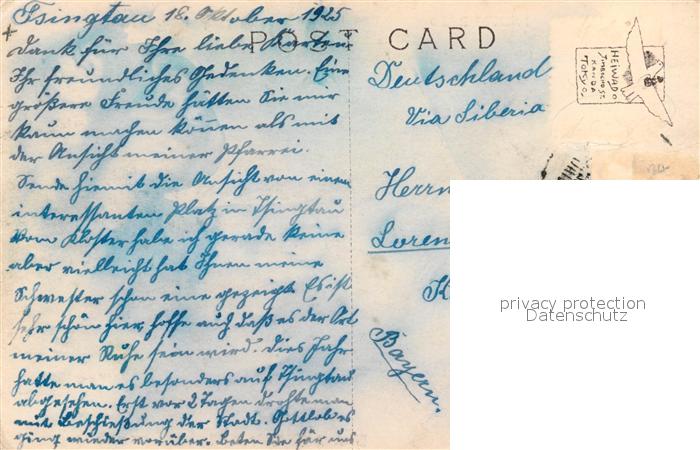 Tsingtau 18. Oktober 1925
Dank für Ihre lieben Karten
Ihr freundliches Gedenken. Eine
größere Freude hätten Sie mir
kaum machen können als mit
der Ansicht meiner Pfarrei.
Sende hiemit die Ansicht von einem
interessanten Platz in Tsingtau
Vom Kloster habe ich gerade keine
aber vielleicht hat Ihnen meine
Schwester schon eine gezeigt. Es ist
sehr schön hier, hoffe auch daß es der Ort
meiner Ruhe sein wird. Dies Jahr
hatte man es besonders auf Tsingtau
abgesehen. Erst vor 2 Tagen drohte man
mit Beschießung der Stadt. Gottlob es
ging wieder vorüber. Beten Sie für uns
POST CARD
Deutschland
Via Siberia
Herrn
Loren
K
Bayern.
HEIWADO
JIMBOCHO ST.
KANDA
TOKYO
privacy protection
Datenschutz